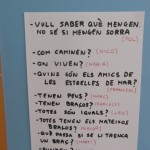 -VULL SABER QUÈ MENGEN.
NO SÉ SI MENGEN SORRA
(POL)
-COM CAMINEN? (NICO)
-ON VIUEN? (MARIA)
-QUINS SÓN ELS AMICS DE
LES ESTRELLES DE MAR?
-TENEN PEUS?
-TENEN BRAÇOS?
-TOTES SÓN IGUALS?
-TOTES TENEN ELS MATEIXOS
BRAÇOS?
-QUÈ PASSA SI SE LI TRENCA
UN BRAÇ?